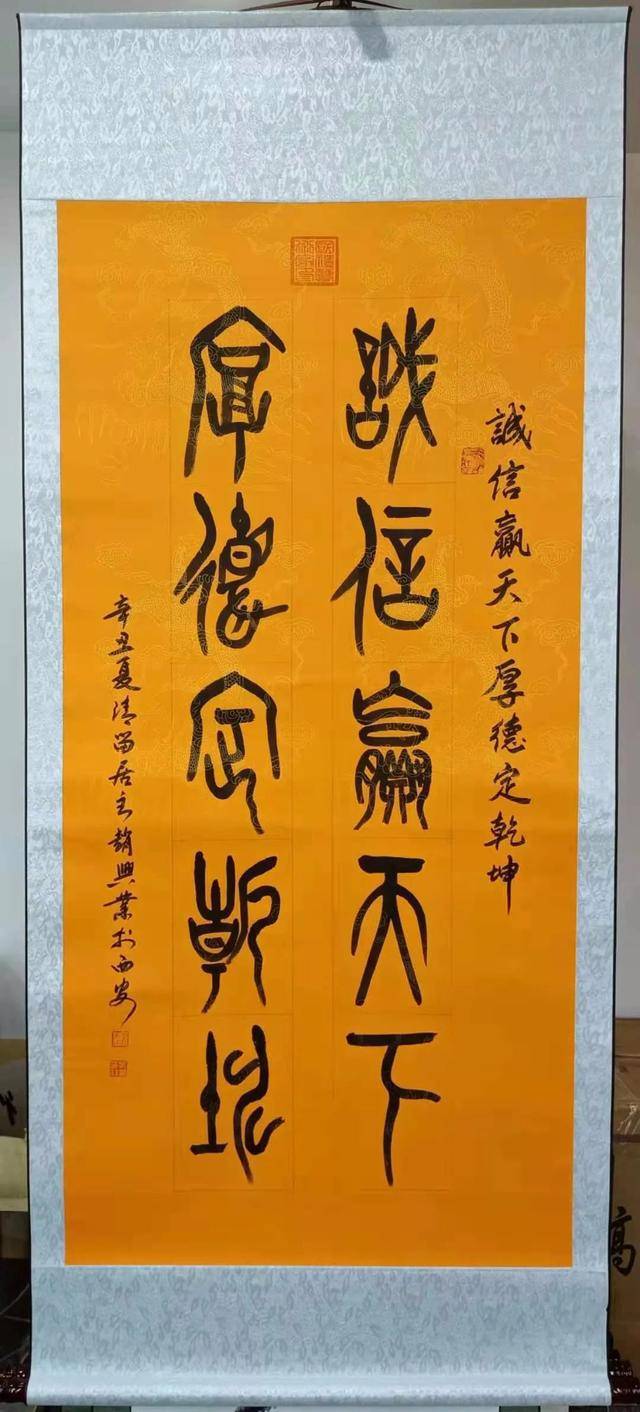 誠信贏天下厚德定乾坤
誠信贏天下
厚德定乾坤
辛丑夏清留居主趙興業於西安
高